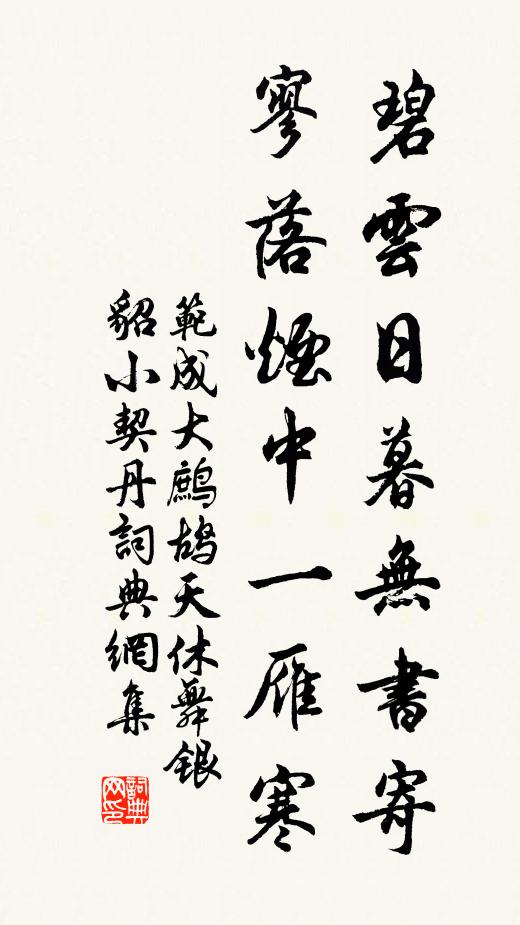 碧雲日暮無書寄
寥落煙中一雁寒
範成大鷓鴣天休舞銀
貂小契丹詞典網集
詞典網印